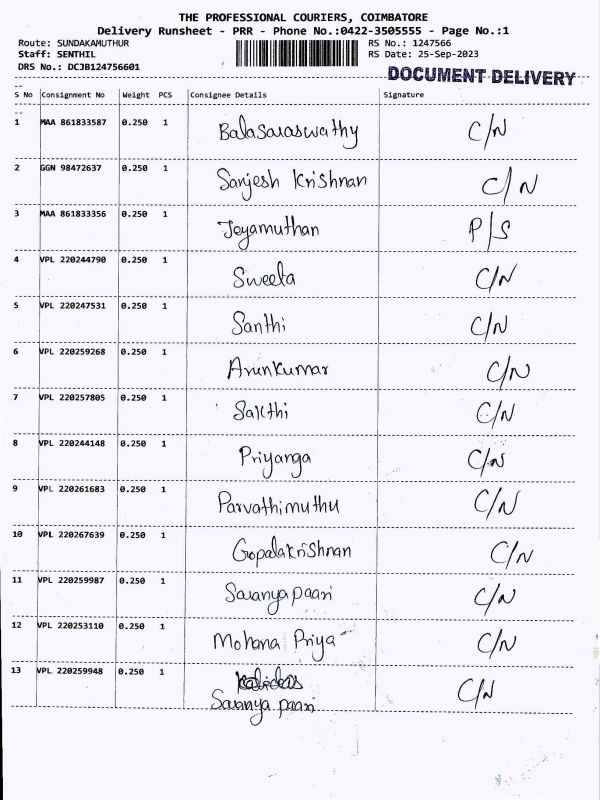 THE PROFESSIONAL COURIERS, COIMBATORE
Delivery Runsheet - PRR - Phone No.:0422-3505555 - Page No.:1
Route: SUNDAKAMUTHUR RS No.: 1247566
Staff: SENTHIL RS Date: 25-Sep-2023
DRS No.: DCJB124756601 DOCUMENT DELIVERY
--
S No Consignment No Weight PCS Consignee Details Signature
--
1 MAA 861833587 0.250 1 Balasaraswathy C/N
2 GGN 98472637 0.250 1 Sanjesh Krishnan C/N
3 MAA 861833356 0.250 1 Jeyamuthan P/S
4 VPL 220244790 0.250 1 Sweeta C/N
5 VPL 220247531 0.250 1 Santhi C/N
6 VPL 220259268 0.250 1 Arunkumar C/N
7 VPL 220257805 0.250 1 Sakthi C/N
8 VPL 220244148 0.250 1 Priyanga C/N
9 VPL 220261683 0.250 1 Parvathimuthu C/N
10 VPL 220267639 0.250 1 Gopalakrishnan C/N
11 VPL 220259987 0.250 1 Saranyapaari C/N
12 VPL 220253110 0.250 1 Mohana Priya C/N
13 VPL 220259948 0.250 1 C/N
Saranya paari